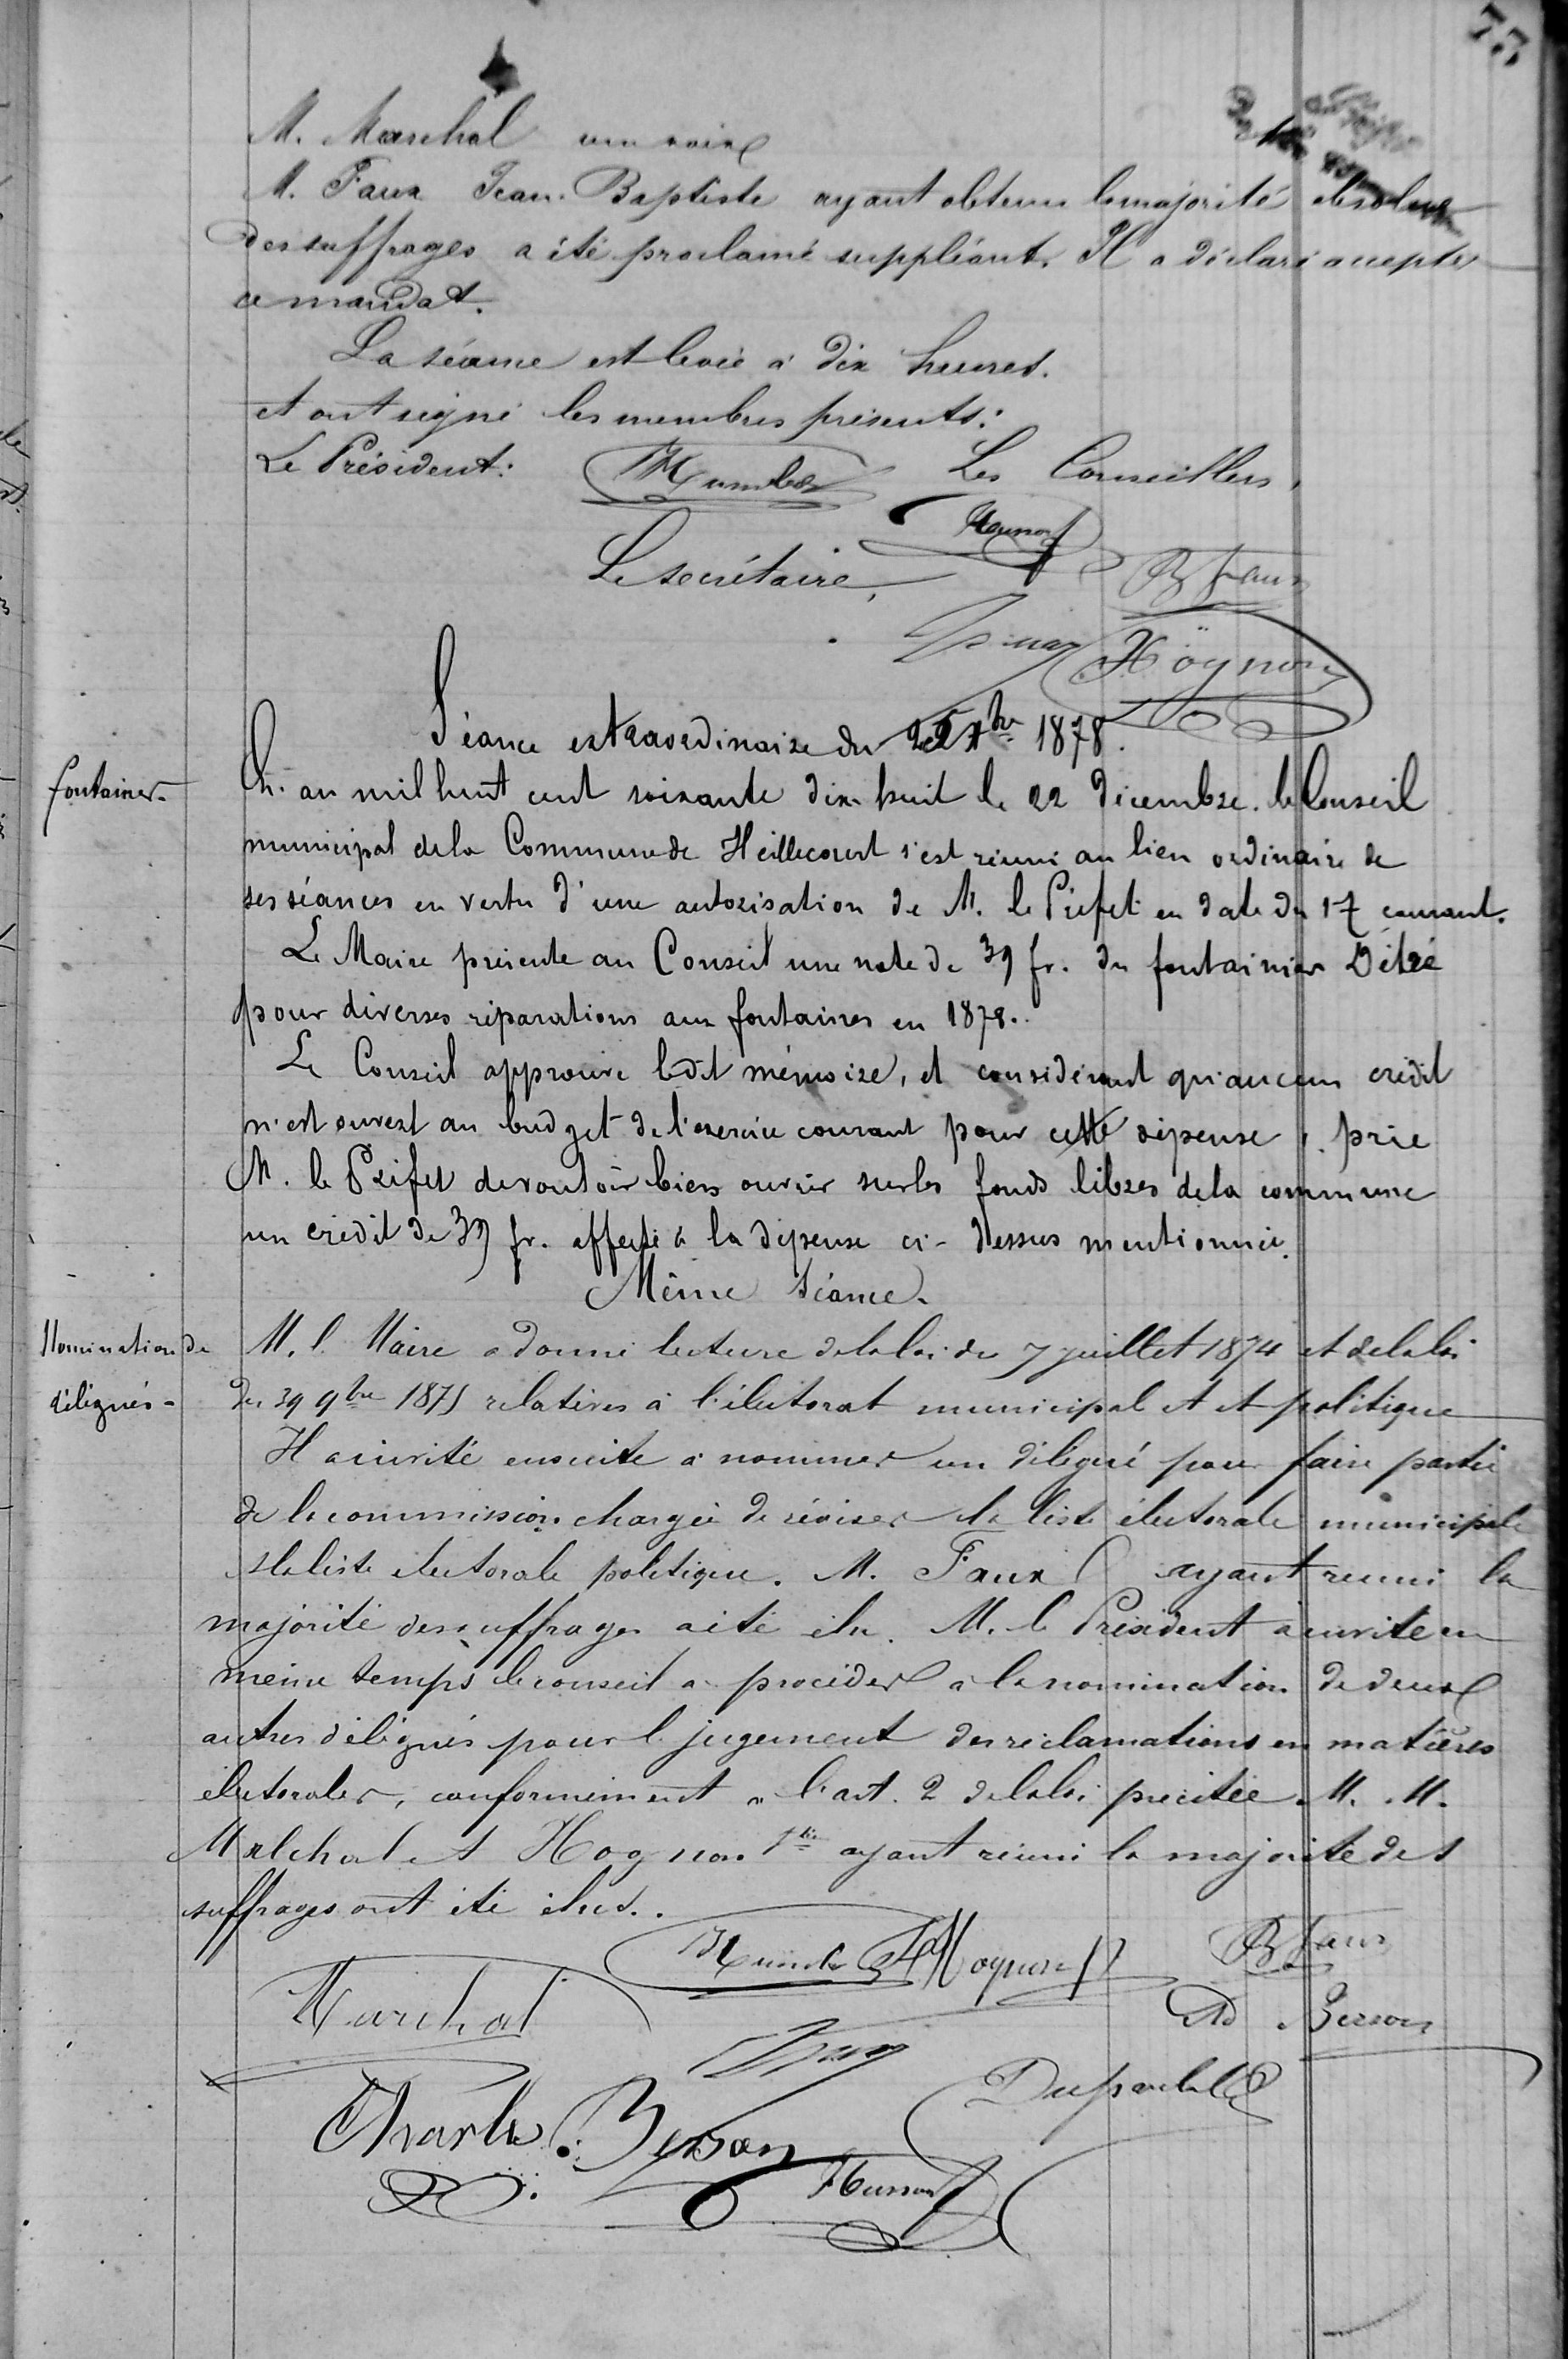 77
M. Marchal une voix
M. Faux Jean-Baptiste ayant obtenu la majorité absolue
des suffrages a été proclamé suppléant. Il a déclaré accepter
ce mandat.
La séance est levée à dix heures.
et ont signé les membres présents:
Le Président: Les Conseillers,
Le secrétaire,
B Faux
Högnon
Séance extraordinaire du 22 Xbre 1878.
fontaines-
L'an mil huit cent soixante dix-huit le 22 décembre. le Conseil
municipal de la Commune de Heillecourt s'est réuni au lieu ordinaire de
ses séances en vertu d'une autorisation de M. le Préfet en date du 17 courant.
Le Maire présente au Conseil une note de 39 fr. du fontainier Détré
pour diverses réparations aux fontaines en 1878.
Le Conseil approuve ledit mémoire, et considérant qu'aucun crédit
n'est ouvert au budget de l'exercice courant pour cette dépense, prie
M. le Préfet de vouloir bien ouvrir sur les fonds libres de la commune
un crédit de 39 fr. affecté à la dépense ci-dessus mentionnée.
Même séance.
Nomination de
délégués-
M. l. Maire a donné lecture de la loi du 7 juillet 1874 et de la loi
du 39 9bre 1875 relatives à l'électorat municipal et et politique
Il a invité ensuite à nommer un délégué pour faire partie
de la commission chargée de réviser la liste électorale municipale
et la liste électorale politique. M. Faux ayant reuni la
majorité des suffrages a été élu. M. le Président a invité en
même temps le conseil à procéder à la nomination de deux
autres délégués pour le jugement des réclamations en matières
électorales, conformément à l'art. 2 de la loi précitée. M. M.
Malchal et Hognon ayant réuni la majorité des
suffrages ont été élus.
Hognon B Faux
Marchal Ad Berson
Charles Berson
Husson